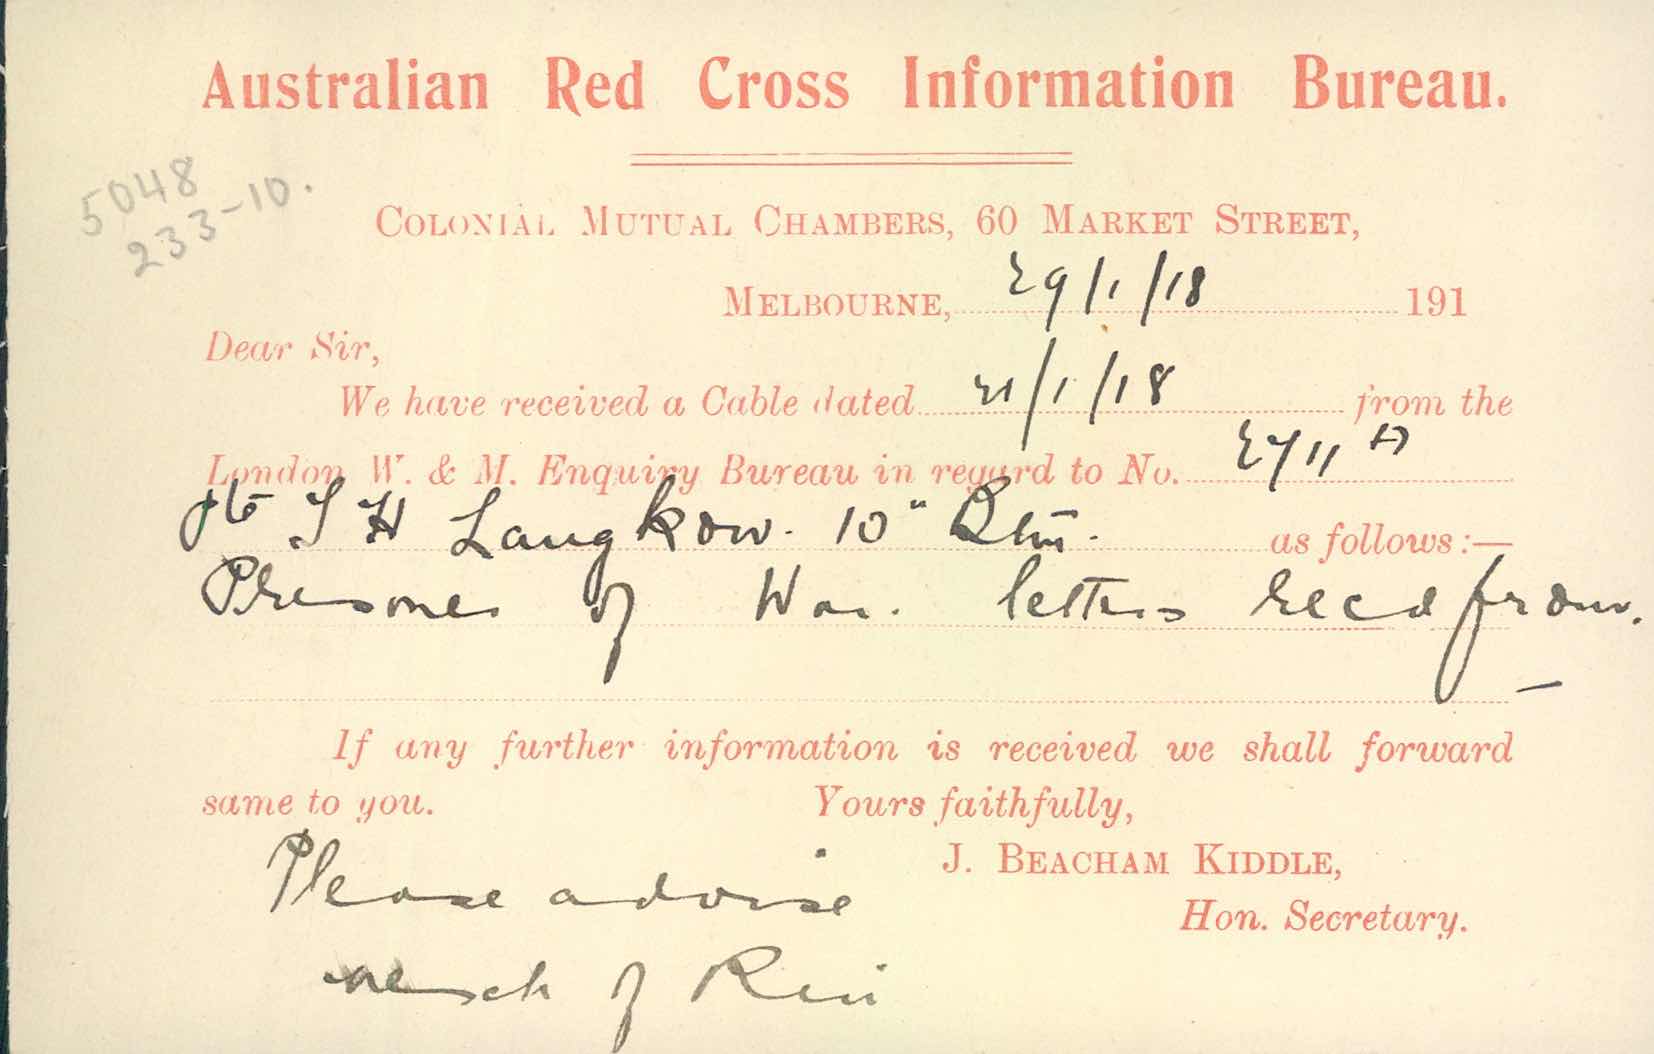 Australian Red Cross Information Bureau.
5048
233-10.
COLONIAL MUTUAL CHAMBERS, 60 MARKET STREET,
MELBOURNE, 29/1/18 191
Dear Sir,
We have received a Cable dated 21/1/18 from the
London W. & M. Enquiry Bureau in regard to No. 2711 A
Pte J H Langkow. 10" Btn. as follows:—
Prisoner of War. letters recd from.
If any further information is received we shall forward
same to you. Yours faithfully,
J. BEACHAM KIDDLE,
Hon. Secretary.
Please advise
of Kin